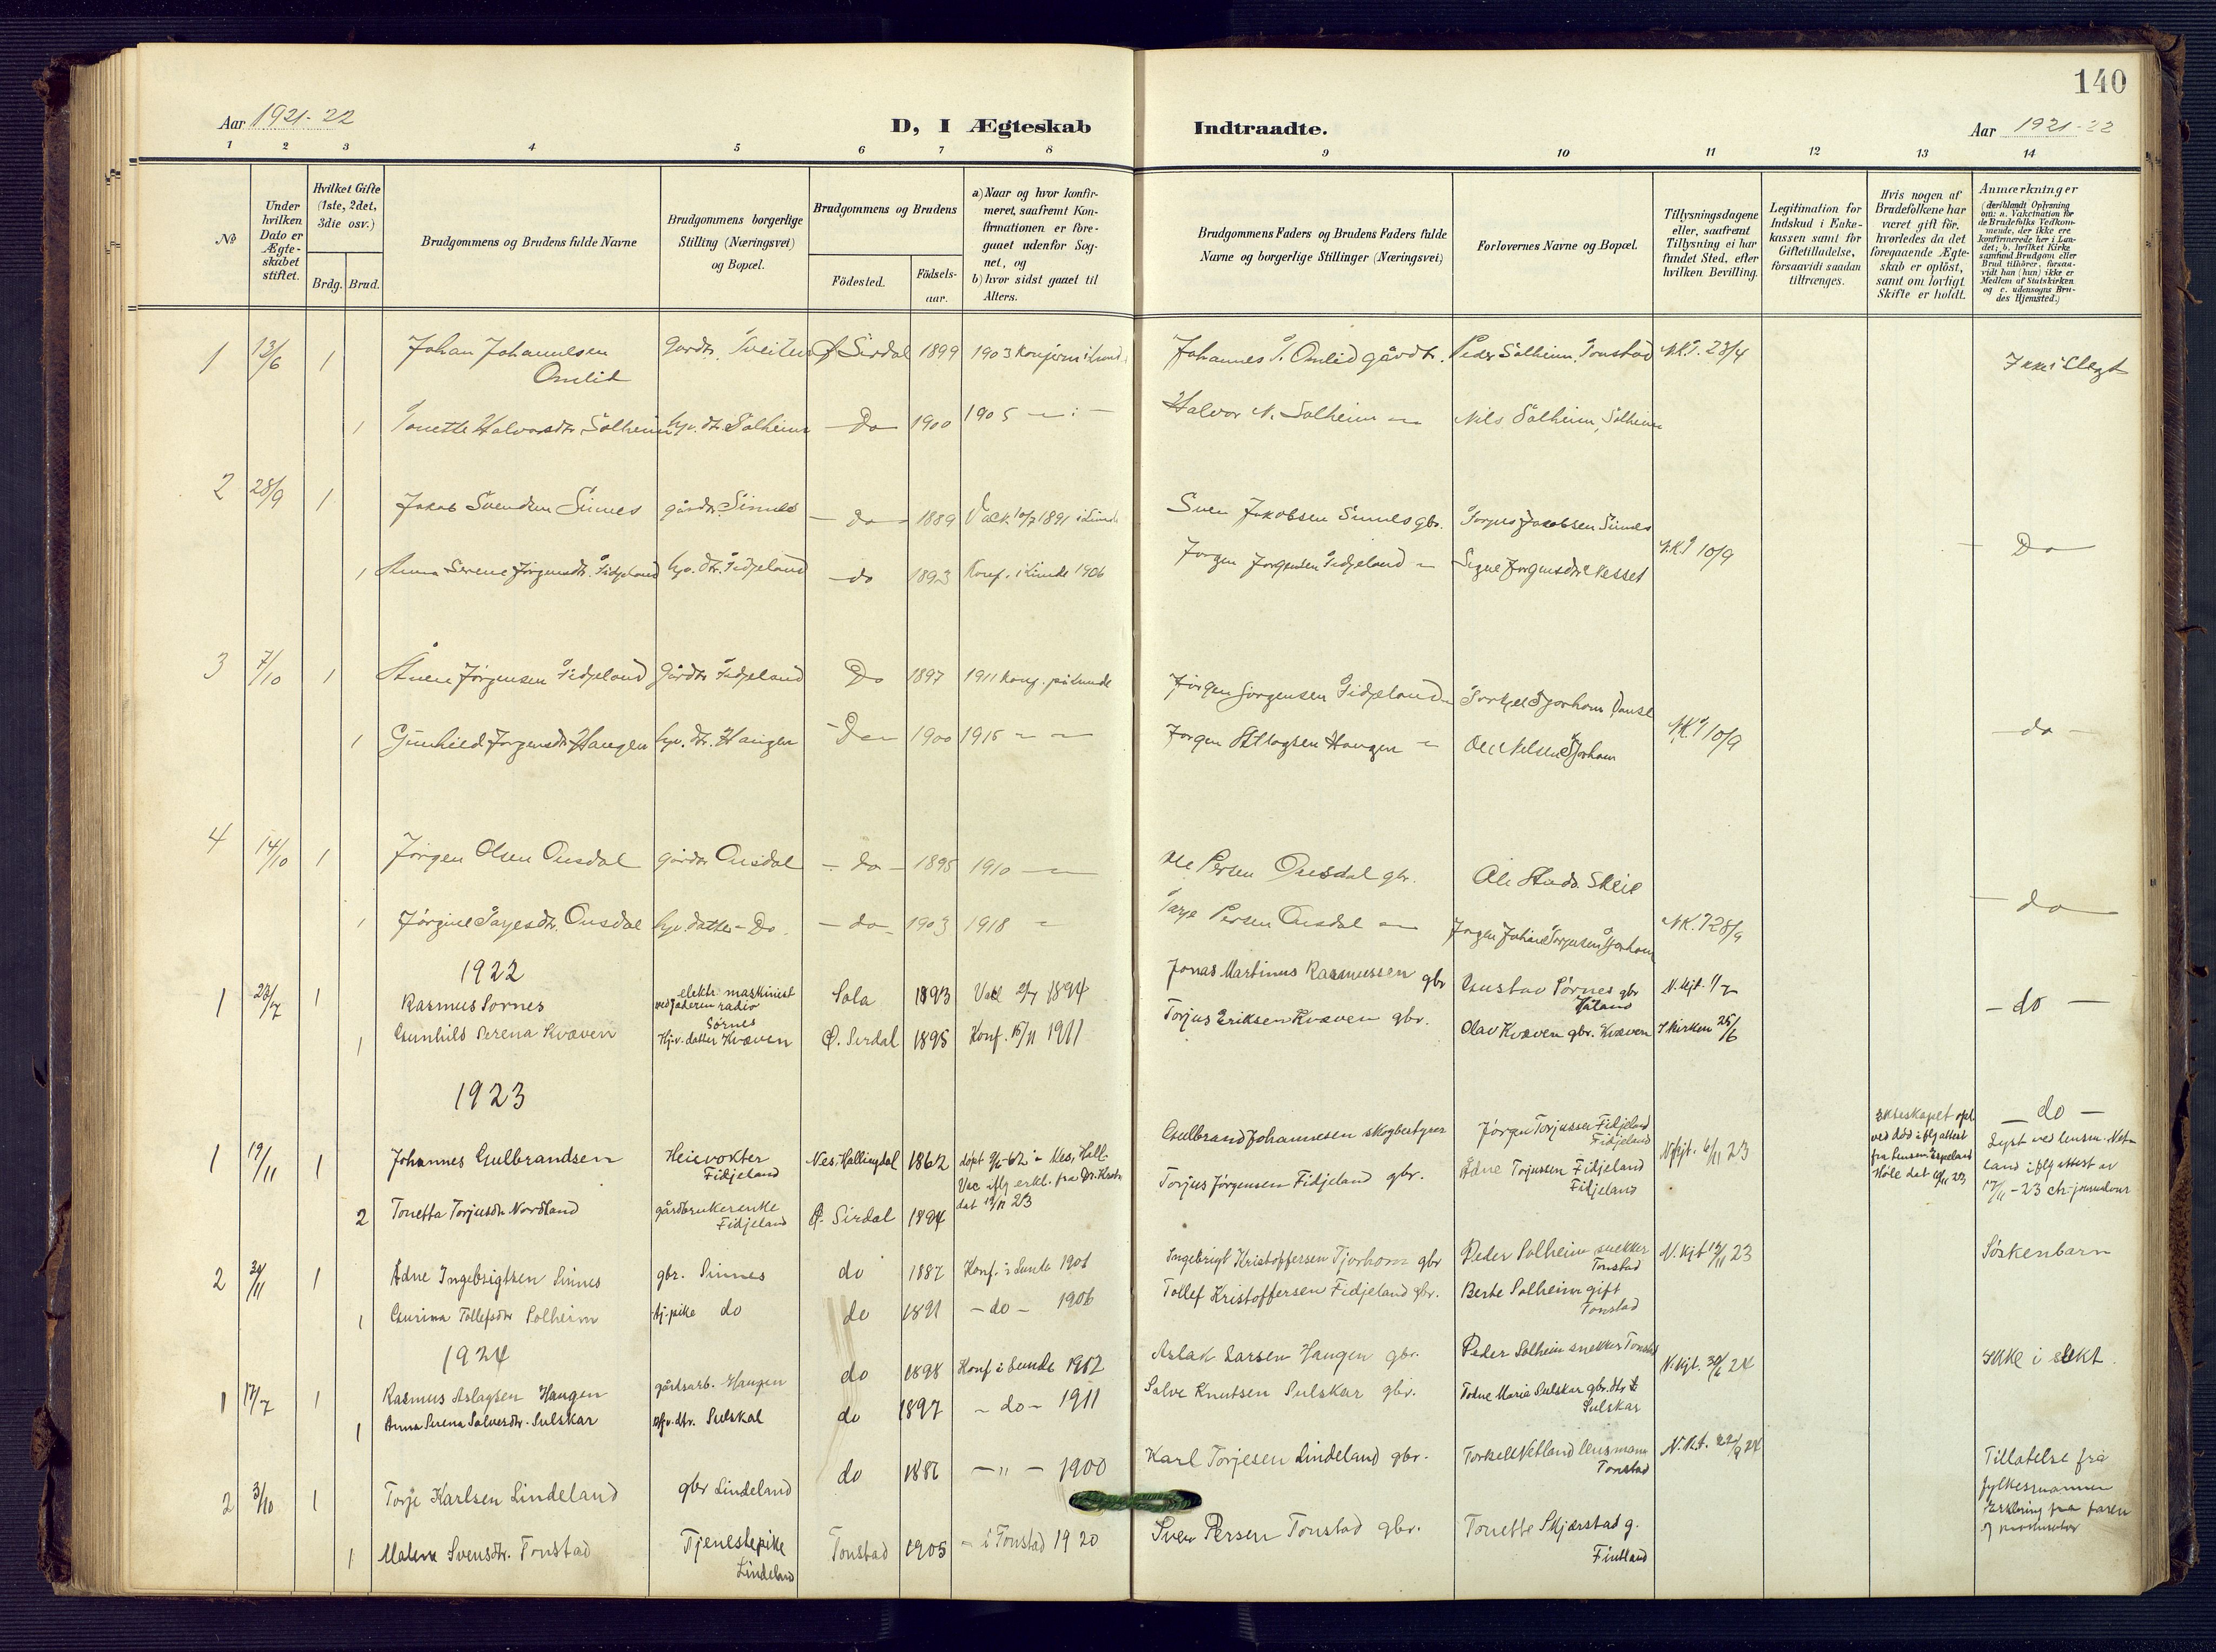 140
Aar 1921-22
D, I Ægteskab Indtraadte.
Aar 1921-22
1 2 3 4 5 6 7 8 9 10 11 12 13 14
No
Under hvilken Dato er Ægteskabet stiftet.
Hvilket Gifte (1ste, 2det, 3die osv.)
Brdg. Brud.
Brudgommens og Brudens fulde Navne
Brudgommens borgerlige Stilling (Næringsvei) og Bopæl.
Brudgommens og Brudens
Födested.
Födsels-aar.
a) Naar og hvor konfirmeret, saafremt Konfirmationen er foregaaet udenfor Sognet, og
b) hvor sidst gaaet til Alters.
Brudgommens Faders og Brudens Faders fulde Navne og borgerlige Stillinger (Næringsvei)
Forlovernes Navne og Bopæl.
Tillysningsdagene eller, saafremt Tillysning ei har fundet Sted, efter hvilken Bevilling.
Legitimation for Indskud i Enkekassen samt for Giftetilladelse, forsaavidt saadan tiltrænges.
Hvis nogen af Brudefolkene har været gift för, hvorledes da det foregaaende Ægteskab er oplöst, samt om lovligt Skifte er holdt.
Anmærkninger (deriblandt Oplysning om: a. Vakcination for de Brudefolks Vedkommende, der ikke ere konfirmerede her i Landet; b. hvilket Kirkesamfund Brudgom eller Brud tilhörer, forsaavidt han (hun) ikke er Medlem af Statskirken og c. udensogns Brudes Hjemsted.)
1 13/6 1 Johan Johannesen Omlid Gårdbr. Tveiten Ø Sirdal 1899 1903 konfirm i Lunde Johannes T. Omlid gårdbr. Peder Solheim, Tonstad NK.T. 23/4 Ikke i Slegt
1 Tonette Halvorsdtr. Solheim hv. dtr. Solheim Do 1900 1905 Halvor N. Solheim Nils Solheim, Solheim
2 28/9 1 Jakob Svendsen Sinnes gårdbr. Sinnes do 1889 Vack. 10/7 1891 i Lunde Sven Jakobsen Sinnes gbr. Torjus Jacobsen Sinnes Do
1 Anna Serene Jörgensdtr. Fidjeland hv. dtr. Fidjeland do 1893 Konf. i Lunde 1906 Jörgen Jörgensen Fidjeland Signe Jörgensdtr. Kvæsset NKT 10/9
3 7/10 1 Ånen Jörgensen Fidjeland Gårdbr Fidjeland Do 1897 1911 konf. på Lunde Jörgen Jorgensen Fidjeland Torkjel Tjorhom
1 Gunhild Jorgensdtr Haugen hv. dtr. Haugen Do 1900 1915 Jorgen Atlagsen Haugen Ole Nilsen Tjorhom NKT 10/9 do
4 14/10 1 Jörgen Olsen Ousdal gårdbr Ousdal do 1895 1910 Ole Persen Ousdal gbr. Ole Skeie
1 Jörgine Tarjesdtr. Ousdal hv. datter Do do 1903 1918 Tarje Persen Ousdal Jørgen Johan Tjorhom NK.T 28/9 do
1922
1 23/7 1 Rasmus Sørnes elektr. maskinist ved Jæderen radio Sørnes Sola 1893 Vacc 1894 Jonas Martinus Rasmussen gbr Gustav Sørnes gbr Håland N.kjt. 1/7 do
1 Gunhild Serena Kvæven Hj.v. datter Kvæven Ø. Sirdal 1895 Konf. 15/11 1911 Torjus Eriksen Kvæven gbr. Olav Kvæven gbr. Kvæven I kirken 25/6
1923
1 19/11 1 Johannes Gulbrandsen Heievokter Fidjeland Nes, Hallingdal 1862 döpt 62 i Nes, Hall. Vac iflg erkl. fra Dr. dat 13/11 23 Gulbrand Johannesen skogbestyrer Jörgen Torjussen Fidjeland Fidjeland N.kjt. 6/11 23 Ekteskapet opl. ved död iflg attest fra lensm. Espeland Höle dat 10/11 23 do Lyst ved lensm. Netland iflg attest av 17/11-23
2 Tonetta Torjusdtr Nordland gårdbrukerenke Fidjeland Ø. Sirdal 1894 Torjus Jörgensen Fidjeland gbr. Ådne Torjussen Fidjeland Fidjeland
2 30/11 1 Ådne Ingebrigtsen Sinnes gbr. Sinnes do 1887 Konf. i Lunde 1901 Ingebrigt Kristoffersen Tjorhom gbr Peder Solheim snekker Tonstad N.kjt 12/11 23 Söskenbarn
1 Gurina Tollefsdtr Solheim tj.pike do do 1891 - do - 1906 Tollef Kristoffersen Fidjeland gbr. Berte Solheim gift Tonstad
1924
1 17/7 1 Rasmus Aslagsen Haugen gårdsarb. Haugen do 1898 Konf i Lunde 1912 Aslak Larsen Haugen gbr. Peder Solheim snekker Tonstad N.kjt. 30/6 24 Ikke i slekt.
1 Anna Serena Salvesdtr. Suleskar dtr. Suleskal do 1897 - do - 1911 Salve Knutsen Suleskar gbr. Todne Maria Suleskar gbr. dtr Suleskar
2 3/10 1 Torje Karlsen Lindeland gbr Lindeland do 1886 - " - 1900 Karl Torjesen Lindeland gbr. Torkell Netland lensmann Tonstad N.Kt. 22/9 24 Tillatelse fra fylkesmannen Erklering fra faren
1 Malene Svensdtr. Tonstad Tjenestepike Lindeland Tonstad 1905 - i Tonstad 1920 Sven Persen Tonstad gbr. Tonette Skjærstad g. Fintland